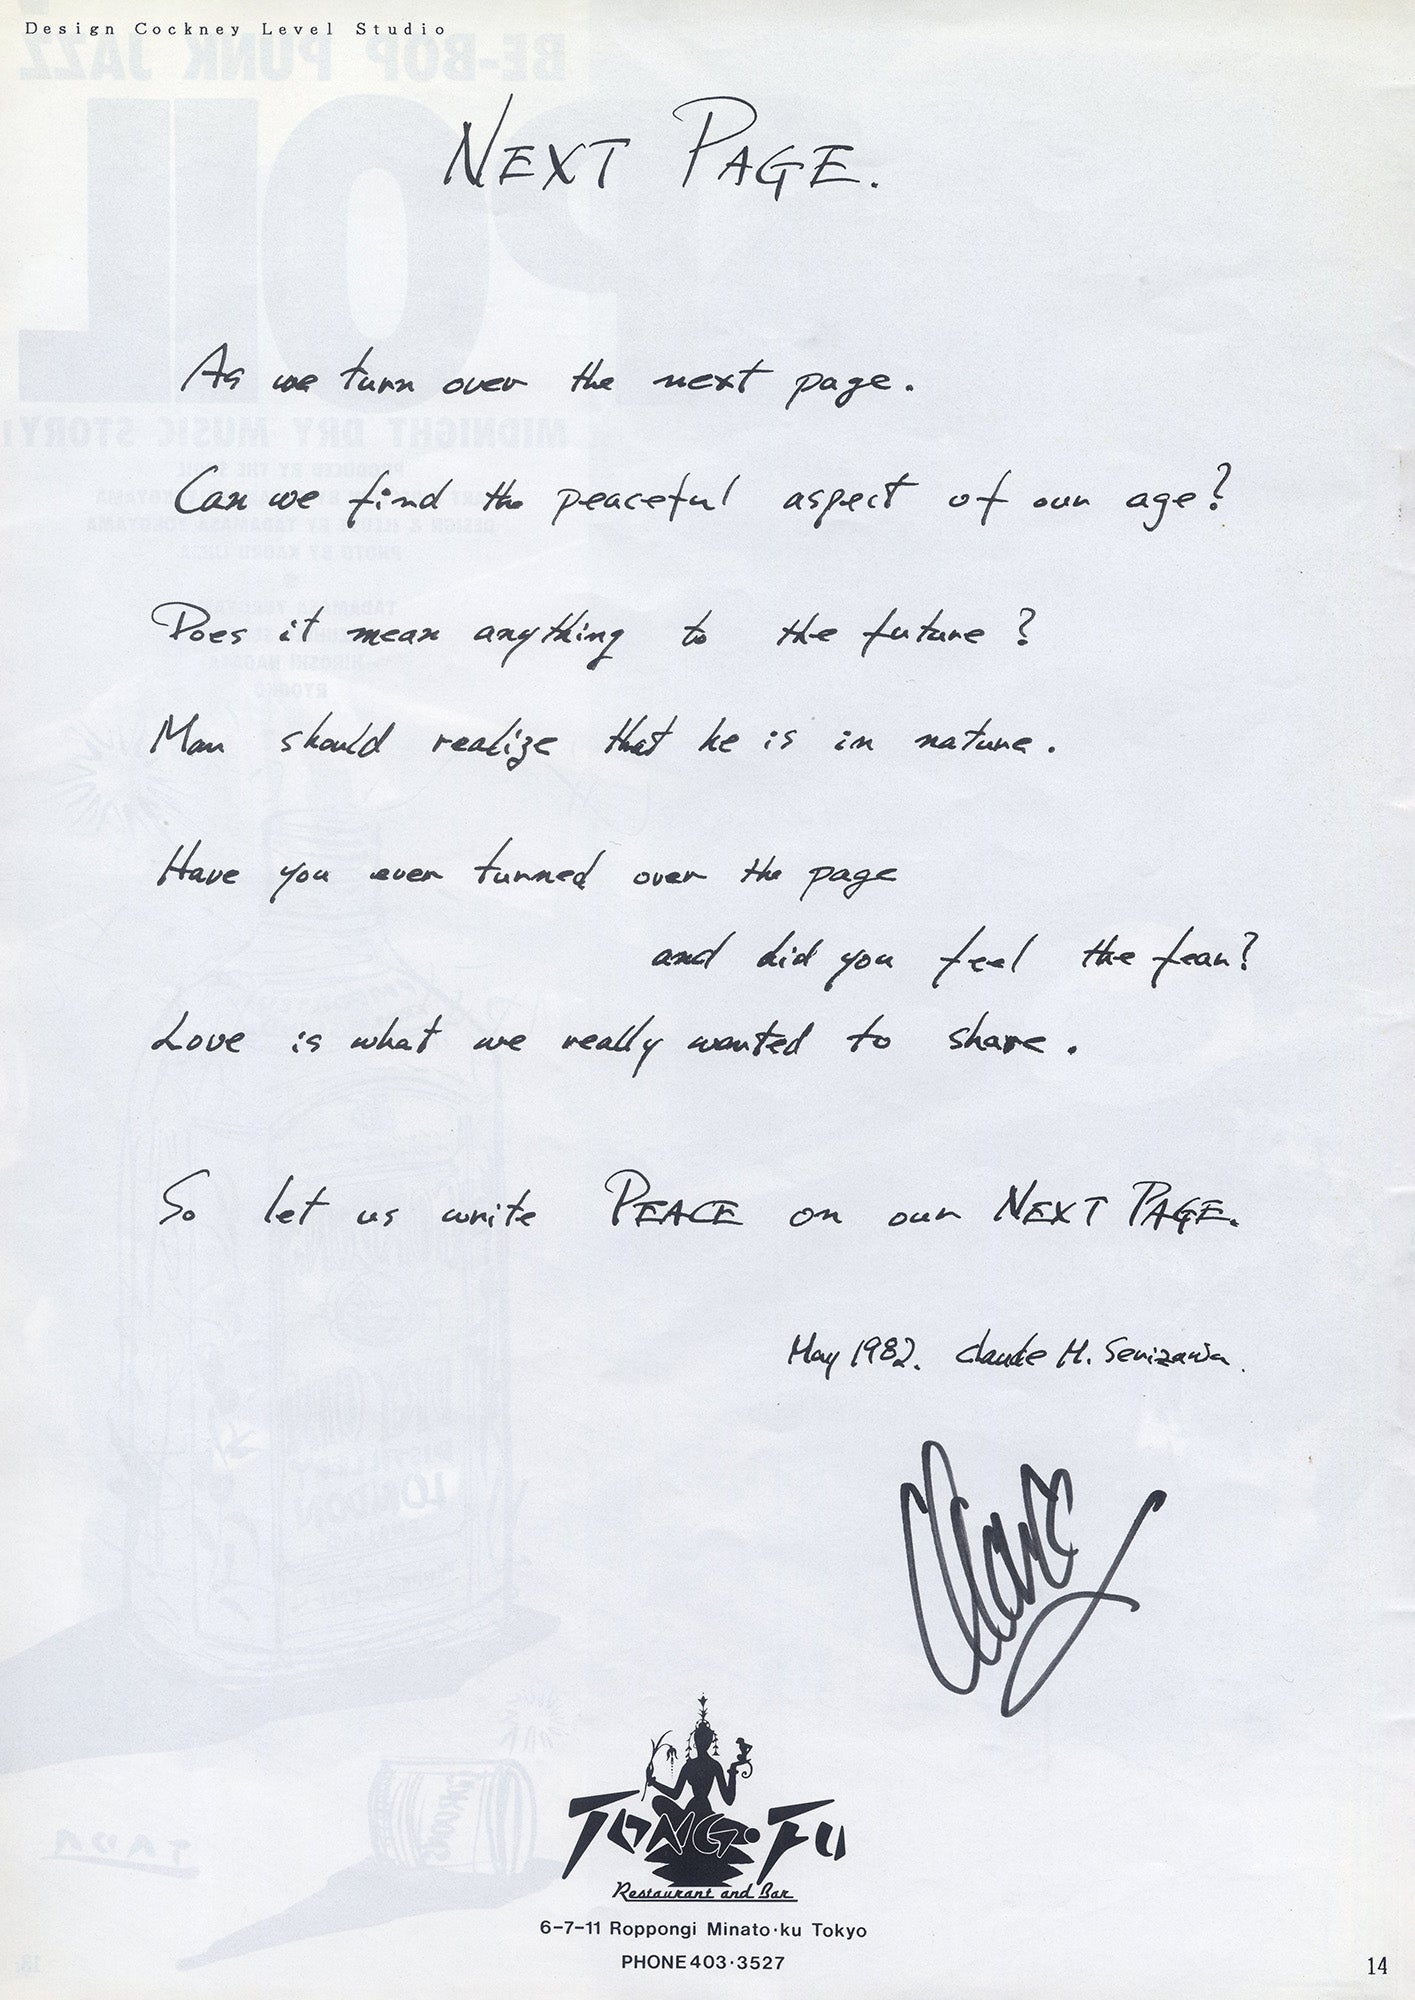 Design Cockney Level Studio
NEXT PAGE.
As we turn over the next page.
Can we find the peaceful aspect of our age?
Does it mean anything to the future?
Man should realize that he is in nature.
Have you ever turned over the page
and did you feel the fear?
Love is what we really wanted to share.
So let us write PEACE on our NEXT PAGE.
May 1982. Claude M. Senizawa.
Claude
TONG·FU
Restaurant and Bar
6-7-11 Roppongi Minato·ku Tokyo
PHONE 403·3527
14